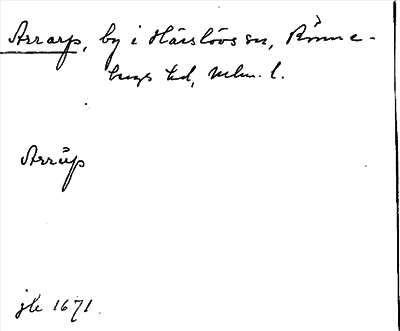 Arrarp, by i Härslövs sn, Rönne-
bergs hd, Mlm. l.
Arrüp
jb 1671